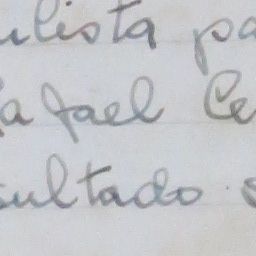 ulista pa
afael Ce
sultado s